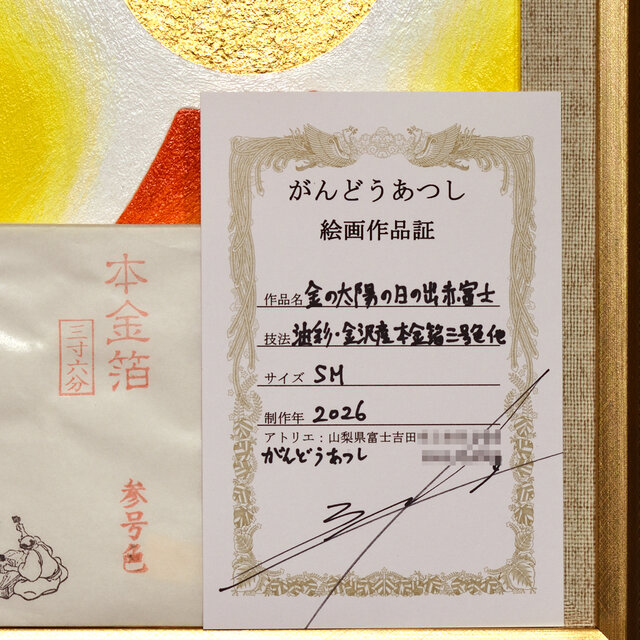 がんどうあつし
絵画作品証
作品名 金の太陽の日の出赤富士
技法 油彩・金沢産本金箔三号色他
サイズ SM
制作年 2026
アトリエ：山梨県富士吉田
がんどうあつし
本金箔
三寸六分
参号色